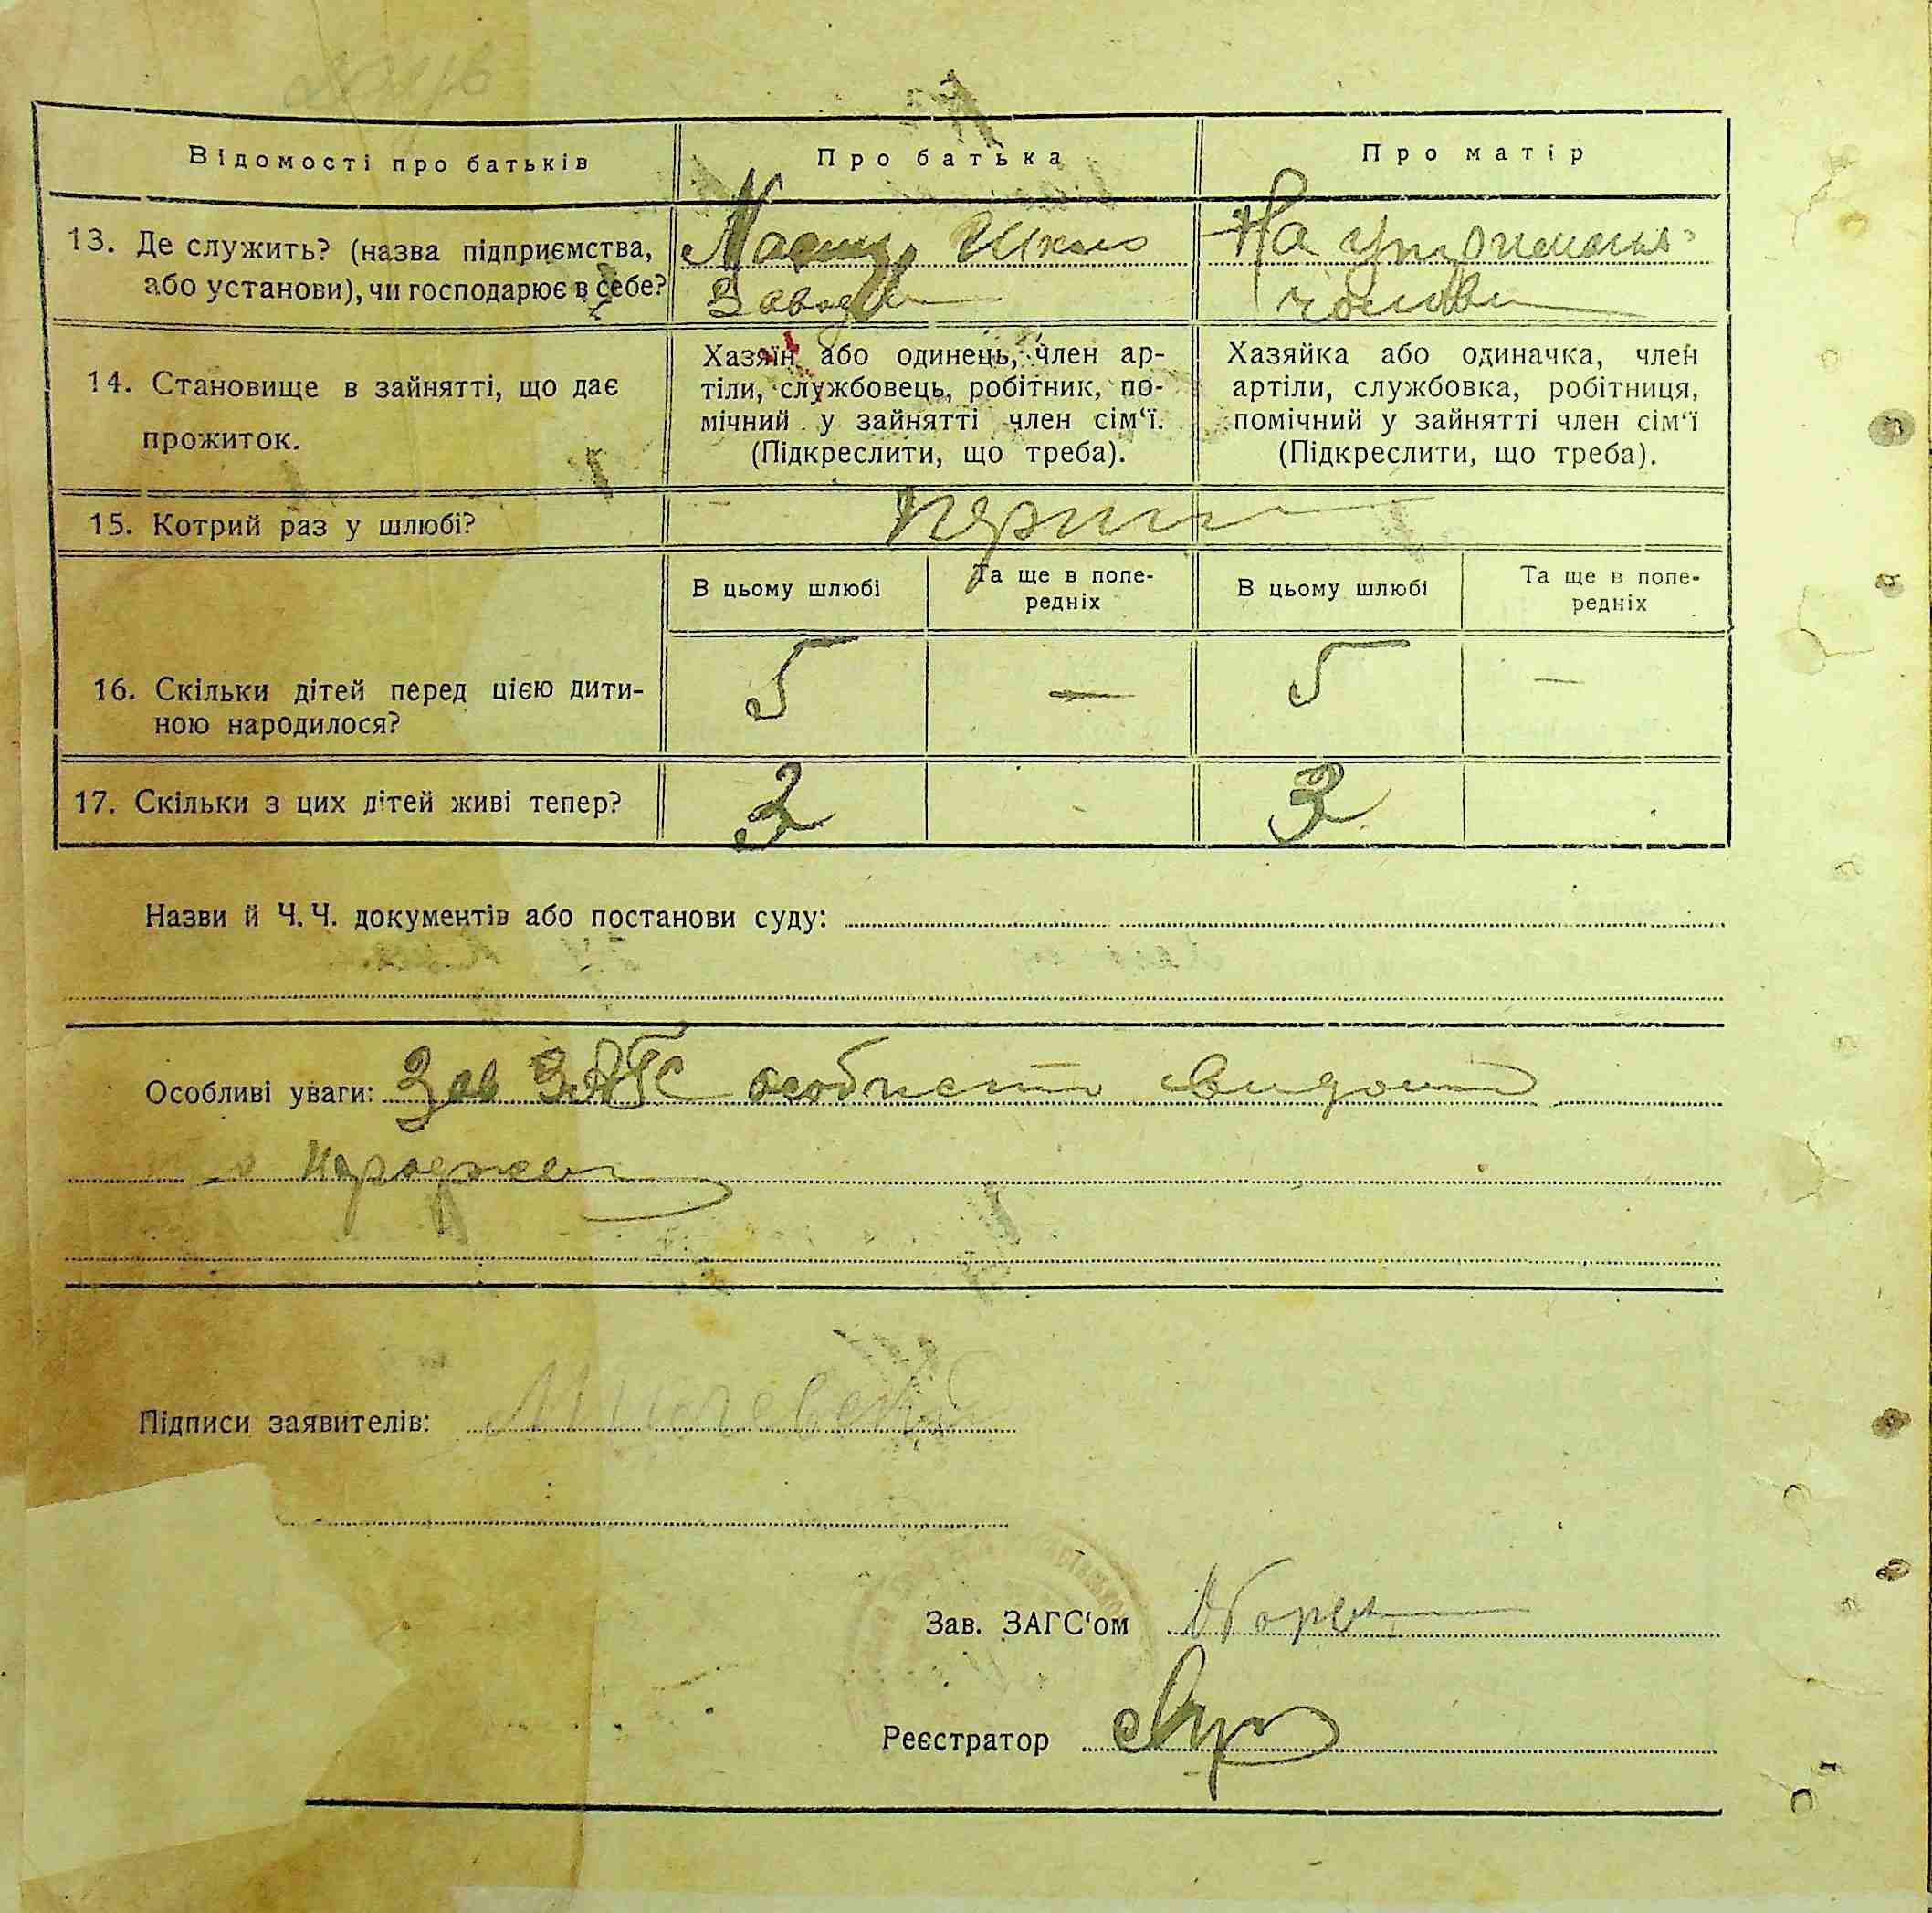 Відомості про батьків
Про батька
Про матір
13. Де служить? (назва підприємства,
або установи), чи господарює в себе?
Шкло
Завод
На утриманні
чоловіка
14. Становище в зайнятті, що дає
прожиток.
Хазяїн або одинець, член ар-
тіли, службовець, робітник, по-
мічний у зайнятті член сім‘ї.
(Підкреслити, що треба).
Хазяйка або одиначка, член
артіли, службовка, робітниця,
помічний у зайнятті член сім‘ї
(Підкреслити, що треба).
15. Котрий раз у шлюбі?
перший
В цьому шлюбі
Та ще в попе-
редніх
В цьому шлюбі
Та ще в попе-
редніх
16. Скільки дітей перед цією дити-
ною народилося?
5 — 5 —
17. Скільки з цих дітей живі тепер?
3 - 3
Назви й Ч. Ч. документів або постанови суду:
Особливі уваги: Зав ЗАГС особисто видомо
народжен
Підписи заявителів:
Зав. ЗАГС‘ом
Реєстратор